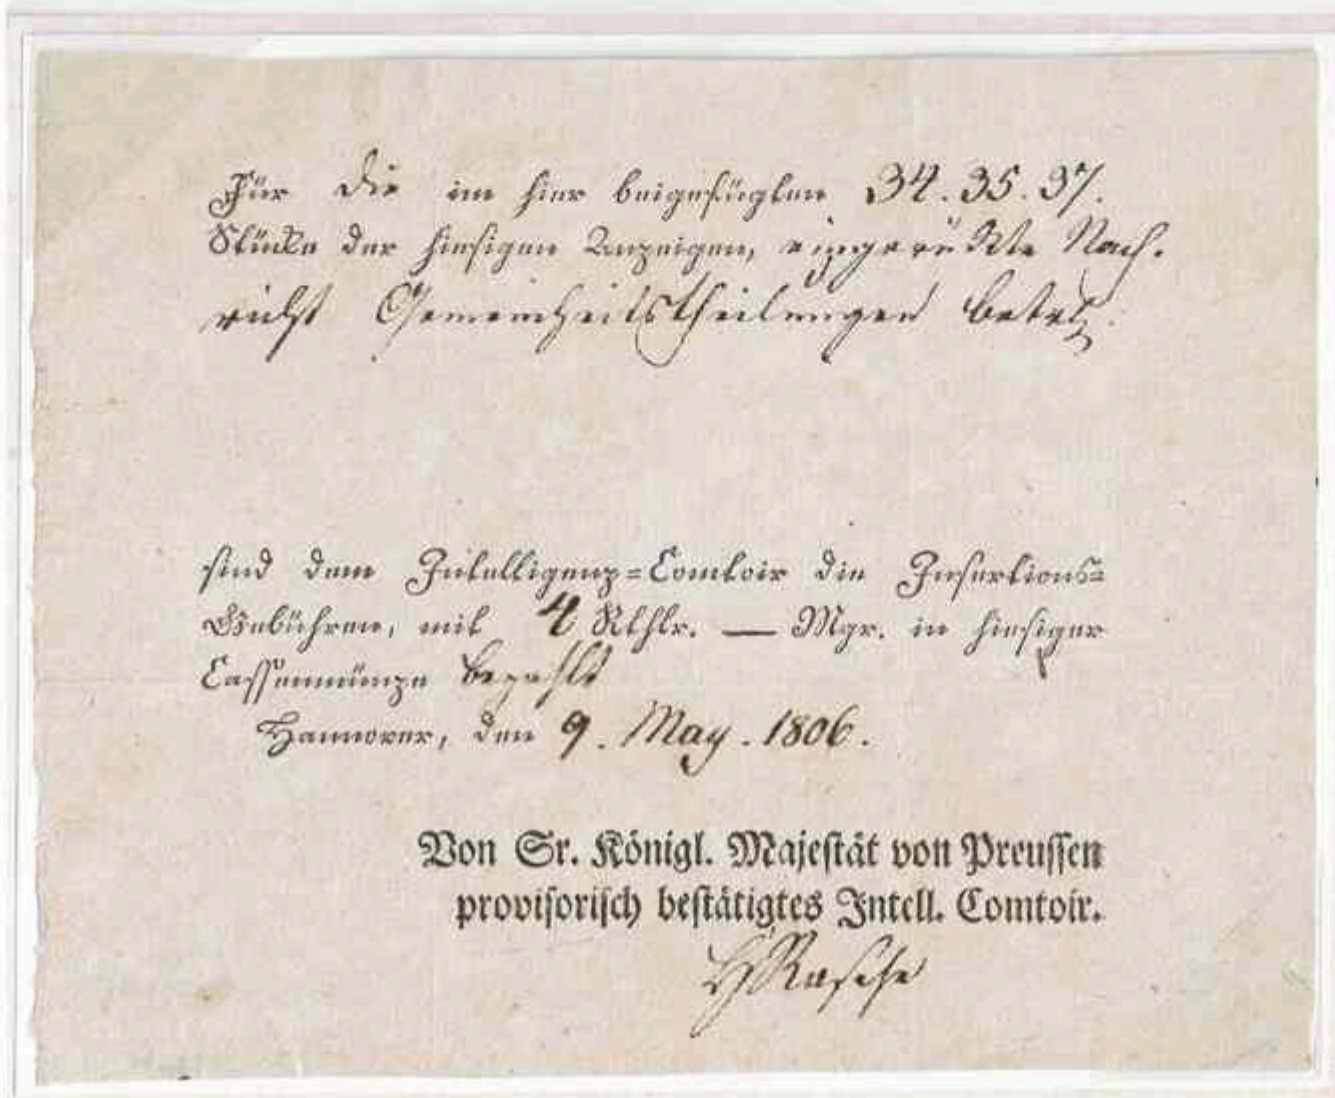 Für die im hier beigefügten 34. 35. 37.
Stücke der hiesigen Anzeigen, eingerückte Nach-
richt Gemeinheitstheilungen betr.
sind dem Intelligenz=Comtoir die Insertions=
Gebühren, mit 4 Rthlr. — Mgr. in hiesiger
Cassenmünze bezahlt
Hannover, den 9. May. 1806.
Von Sr. Königl. Majestät von Preussen
provisorisch bestätigtes Intell. Comtoir.
Rasche